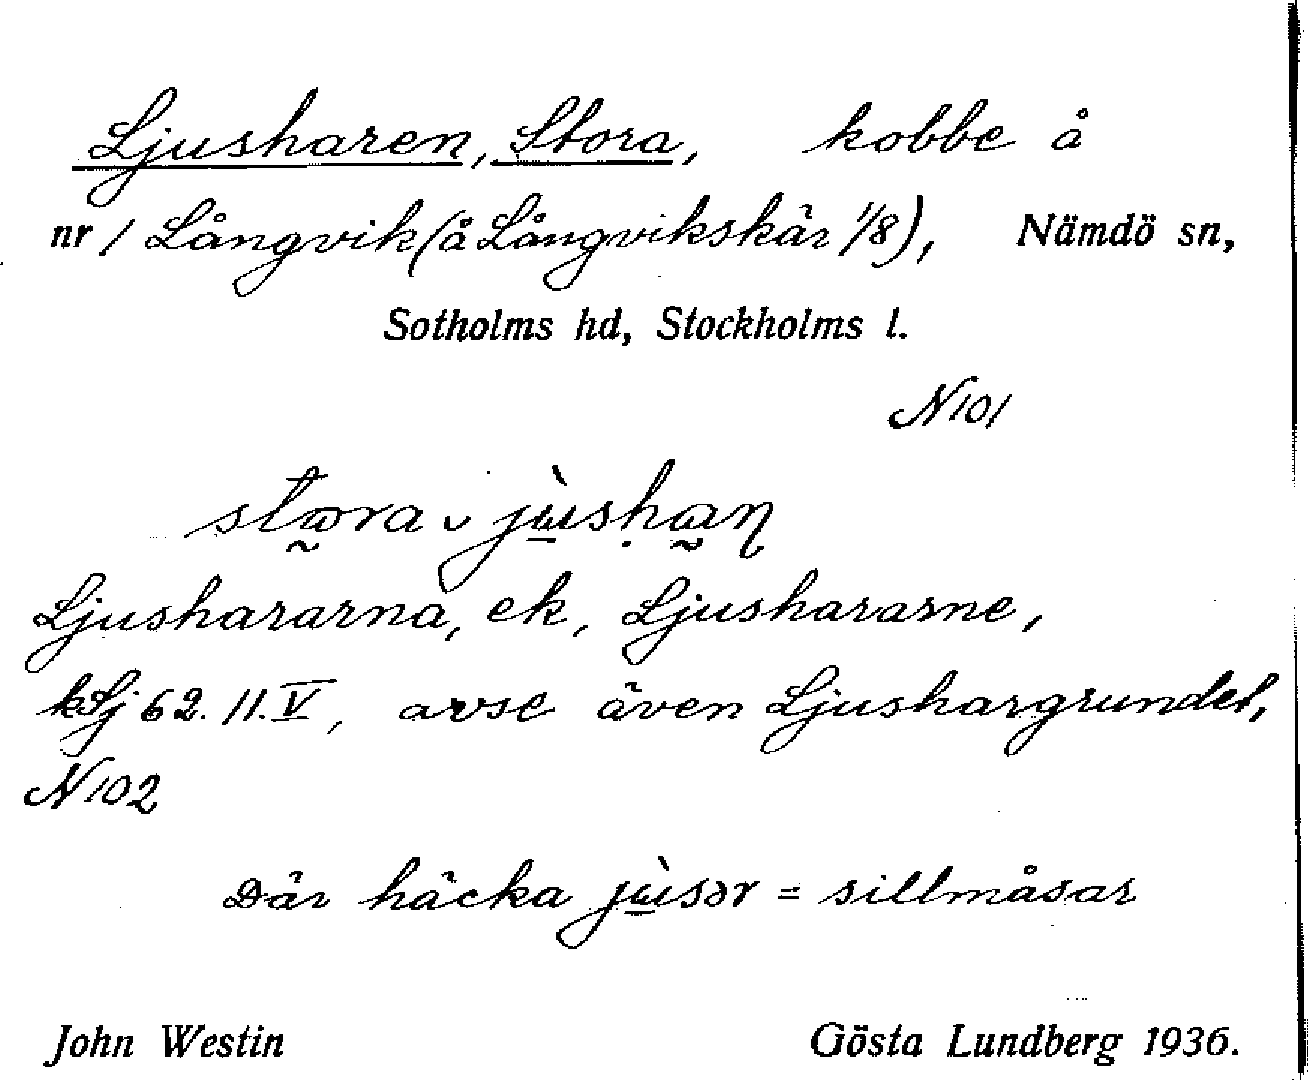 Ljusharen, Stora, kobbe å
nr 1 Långvik (å Långvikskär 1/8), Nämdö sn,
Sotholms hd, Stockholms l.
N 101
stora jùshan
Ljushararna, ek, Ljushararne,
62. 11. V, avse även Ljushargrundet,
N 102
Där häcka jùsər = sillmåsar
John Westin Gösta Lundberg 1936.